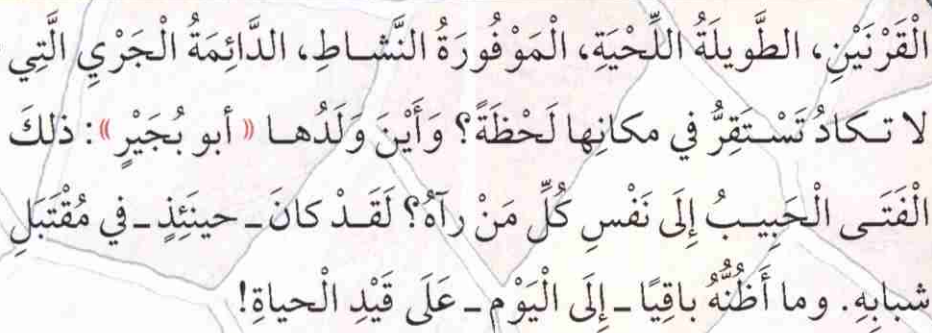 الْقَرْنَيْنِ، الطَّوِيلَةُ اللِّحْيَةِ، الْمَوْفُورَةُ النَّشاطِ، الدَّائِمَةُ الْجَرْيِ الَّتِي
لا تكادُ تَسْتَقِرُّ في مكانِها لَحْظَةً؟ وَأَيْنَ وَلَدُها « أبو بُجَيْرٍ »: ذلكَ
الْفَتَى الْحَبِيبُ إِلَى نَفْسِ كُلِّ مَنْ رآهُ؟ لَقَدْ كانَ ـ حينَئِذٍ ـ في مُقْتَبَلِ
شبابِهِ. وما أَظُنُّهُ باقِيًا ـ إِلَى الْيَوْمِ ـ عَلَى قَيْدِ الْحياةِ!